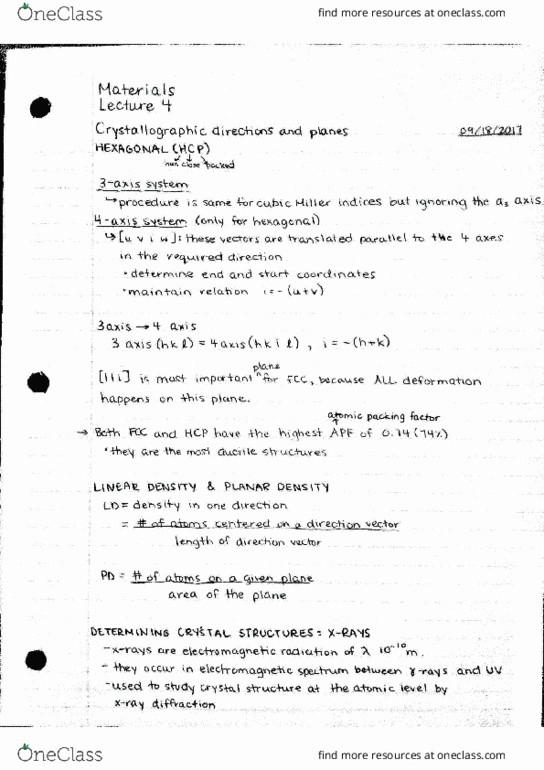 OneClass
find more resources at oneclass.com
Materials
Lecture 4
Crystallographic directions and planes 09/18/2017
HEXAGONAL (HCP)
hex close packed
3-axis system
↳ procedure is same for cubic Miller indices but ignoring the a₃ axis
4-axis system (only for hexagonal)
↳ [u v i w]: these vectors are translated parallel to the 4 axes
in the required direction
• determine end and start coordinates
• maintain relation i = -(u+v)
3 axis → 4 axis
3 axis (h k l) = 4 axis (h k i l) , i = -(h+k)
plane
[111] is most important ^ for FCC, because ALL deformation
happens on this plane.
atomic packing factor
→ Both FCC and HCP have the highest APF of 0.74 (74%)
• they are the most ductile structures
LINEAR DENSITY & PLANAR DENSITY
LD = density in one direction
= # of atoms centered on a direction vector
length of direction vector
PD = # of atoms on a given plane
area of the plane
DETERMINING CRYSTAL STRUCTURES: X-RAYS
- x-rays are electromagnetic radiation of λ 10⁻¹⁰ m.
- they occur in electromagnetic spectrum between γ-rays and UV
- used to study crystal structure at the atomic level by
x-ray diffraction
OneClass
find more resources at oneclass.com